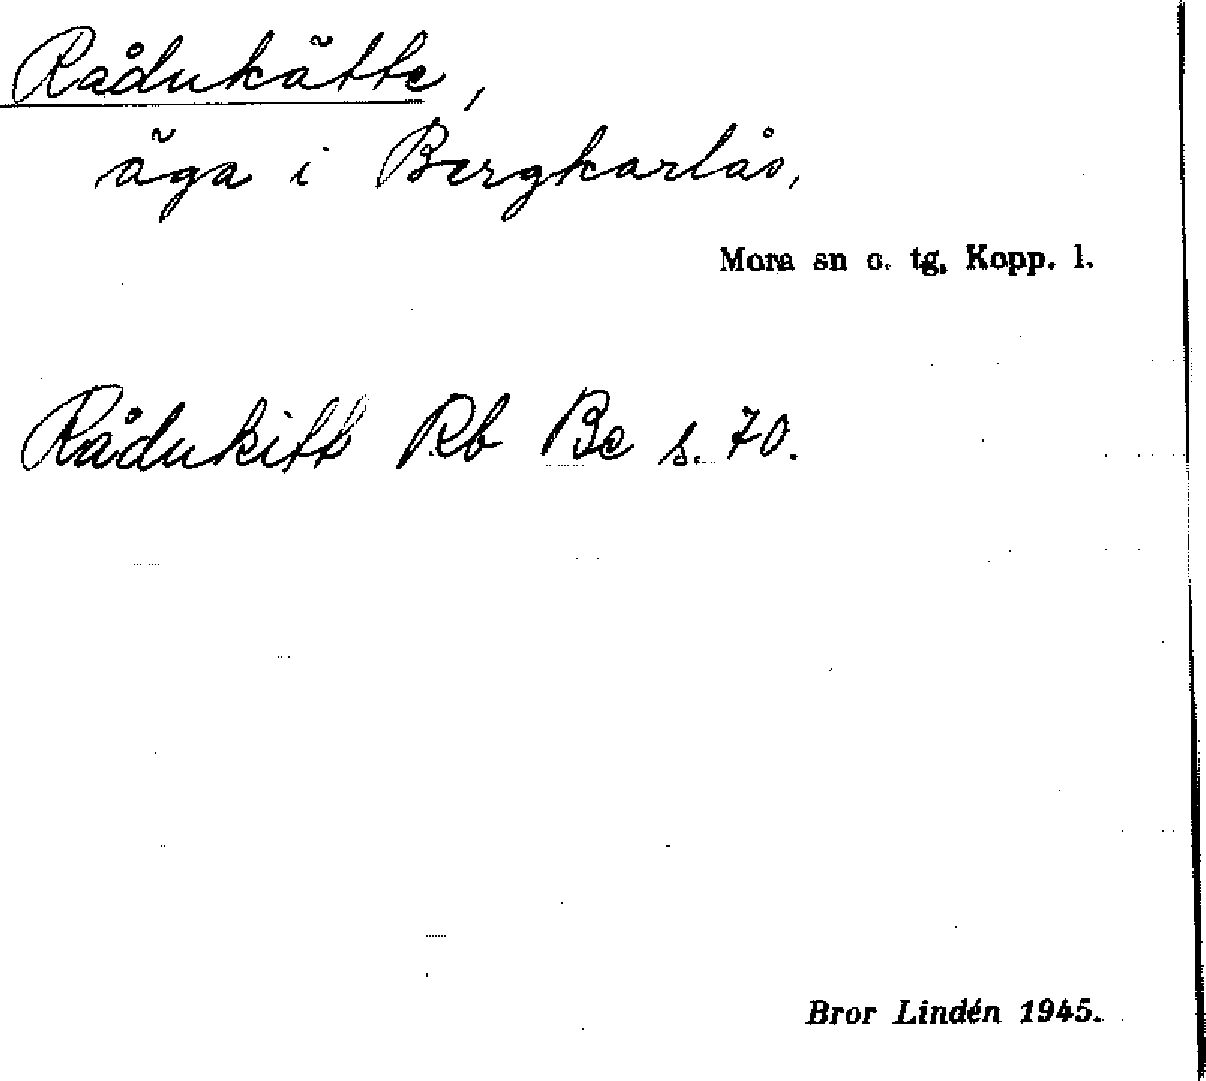 Rådukätte,
äga i Bergkarlås,
Mora sn o. tg, Kopp. l.
Rådukitt Rb Be s. 70.
Bror Lindén 1945.